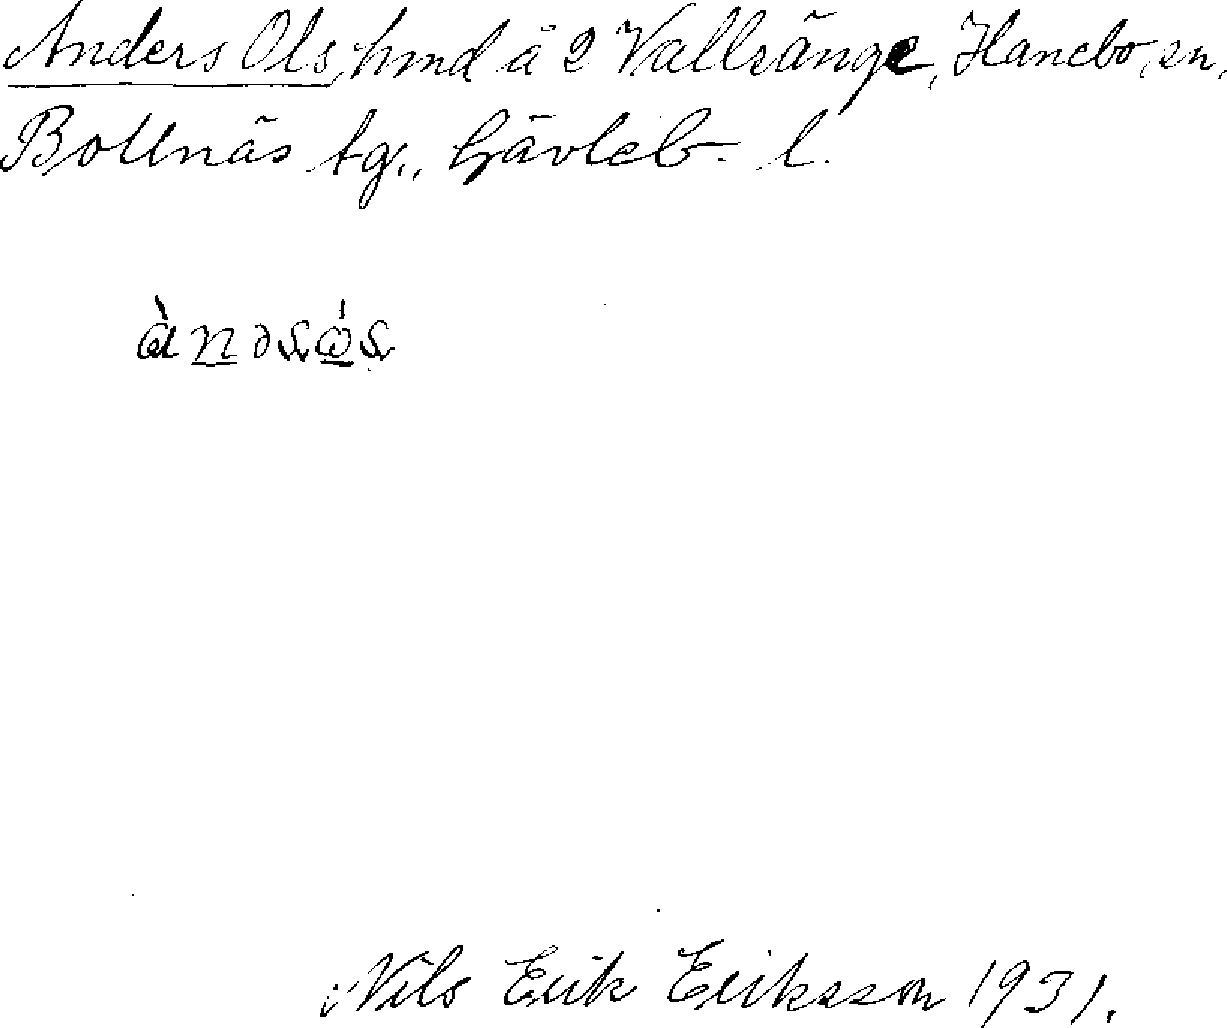 Anders Ols, hmd å 2 Vallsänge, Hanebo sn,
Bollnäs tg., Gävleb. l.
Nils Erik Eriksson 1931.